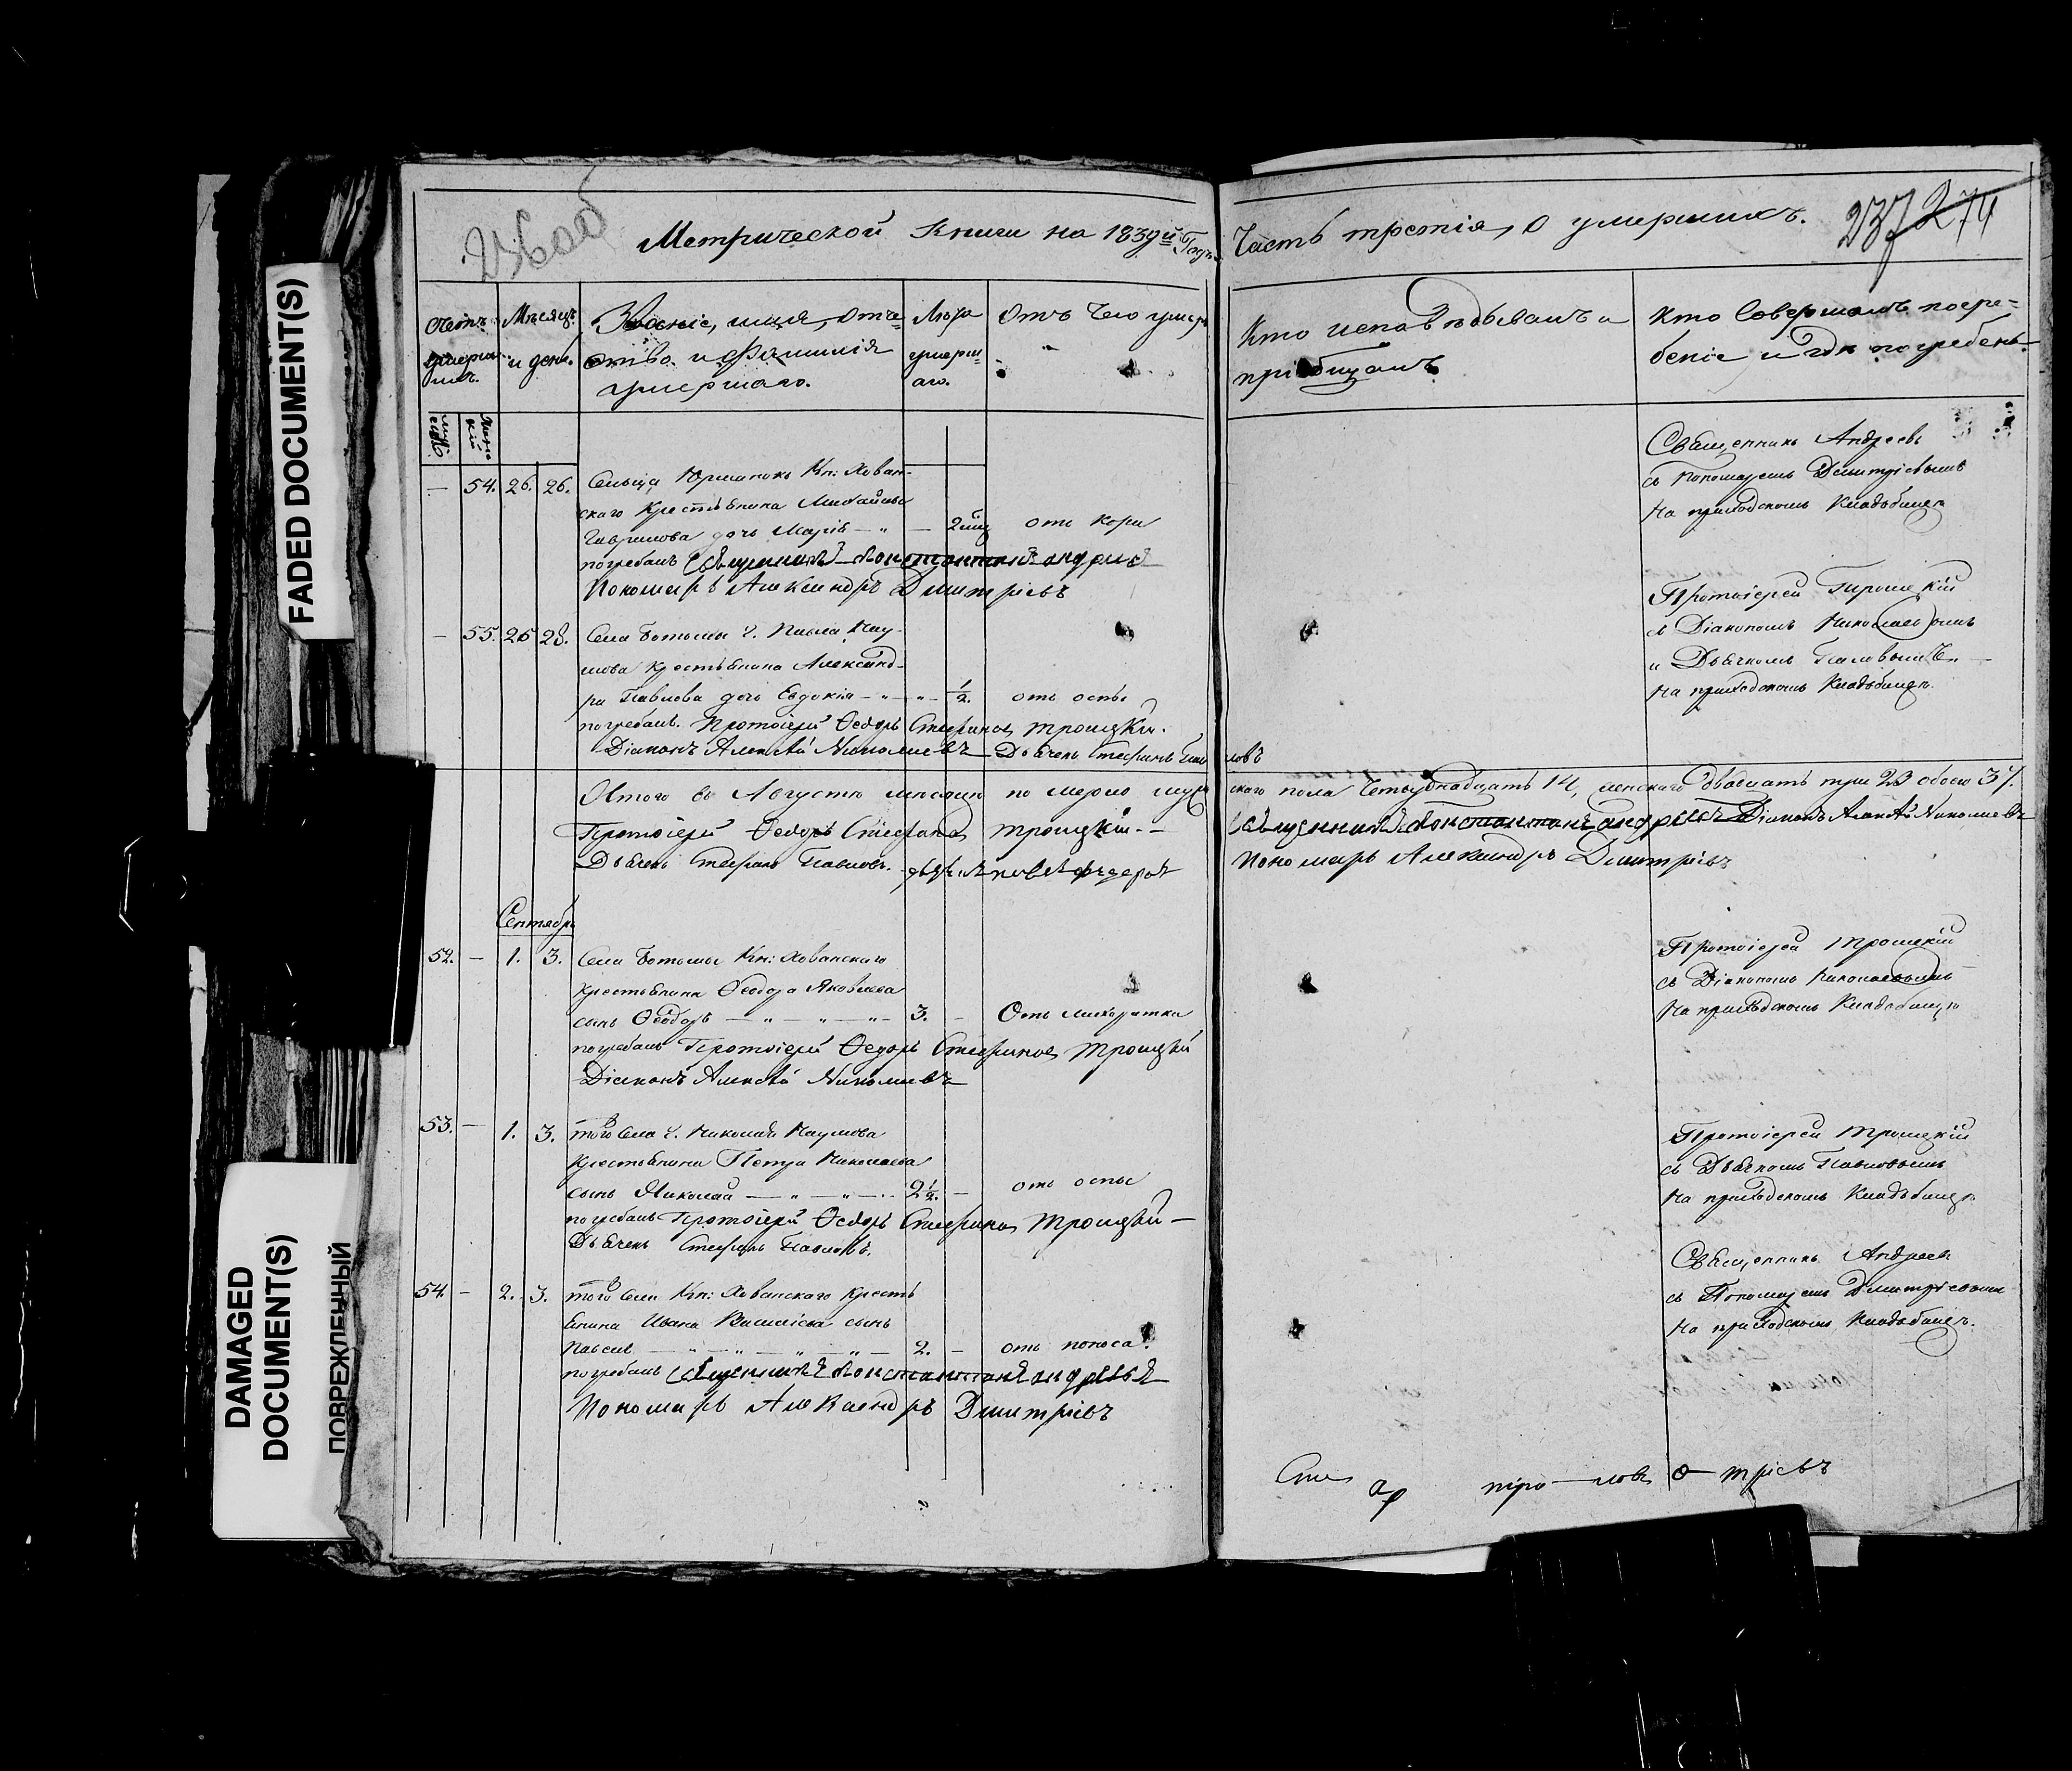 FADED DOCUMENT(S)
DAMAGED
DOCUMENT(S)
ПОВРЕЖДЕННЫЙ
236 об
Метрической Книги на 1839й Годъ
Счетъ умерших.
Мѣсяцъ и день.
Званіе, имя, отче=
ство и фамилія
умершаго.
Лѣта
умерш=
аго.
Отъ Чего умеръ
— 54. 26. 26. Сельца Кн: Хован-
скаго Крестьянина Михайлы
Гаврилова дочь Марія — „ — 2 отъ кори
погребалъ Священникъ Константинъ Андреевъ
Пономарь Александръ Дмитріевъ
— 55. 25 28. Села Ботьмы Г. Павла Нау-
мова крестьянина Александ-
ра Павлова дочь Евдокія — „ — „ — 1/2. отъ оспы
погребалъ. Протоіерей Ѳеодоръ Стефановъ Троицкій.
Діаконъ Алексѣй Николаевъ Дьячекъ Стефанъ Павловъ
Итого въ Августѣ мѣсяцѣ померло мужескаго пола Четырнадцать 14, женскаго двадцать три 23 обоего 37.
Протоіерей Ѳеодоръ Стефановъ Троицкій. — Священникъ Константинъ Андреевъ Діаконъ Алексѣй Николаевъ
Дьячекъ Стефанъ Павловъ. Пономарь Александръ Дмитріевъ
Сентябрь
52. — 1. 3. Села Ботьмы Кн: Хованскаго
крестьянина Ѳеодора Яковлева
сынъ Ѳеодоръ — „ — „ — „ — 3. — Отъ лихорадки
погребалъ Протоіерей Ѳеодоръ Стефановъ Троицкій
Діаконъ Алексѣй Николаевъ
53. — 1. 3. того села Г. Николая Наумова
крестьянина Петра Николаева
сынъ Николай — „ — „ — 2 1/2. — отъ оспы
погребалъ Протоіерей Ѳеодоръ Стефановъ Троицкій —
Дьячекъ Стефанъ Павловъ.
54. — 2. 3. того села Кн: Хованскаго кресть
янина Ивана Васильева сынъ
Павелъ — „ — „ — „ — „ — 2. — отъ поноса.
погребалъ Священникъ Константинъ Андреевъ
Пономарь Александръ Дмитріевъ
Часть третія, о умершихъ.
237 274
Кто исповѣдывалъ и
приобщалъ
Кто Совершалъ погре=
беніе и гдѣ погребенъ
Священникъ Андреевъ
съ Пономаремъ Дмитріевымъ
На приходскомъ Кладбищѣ
Протоіерей Троицкій
съ Діакономъ Николаевымъ
и Дьячкомъ Павловымъ —
На приходскомъ Кладбищѣ.
Протоіерей Троицкій
съ Діакономъ Николаевымъ
На приходскомъ Кладбищѣ
Протоіерей Троицкій
съ Дьячкомъ Павловымъ
На приходскомъ Кладбищѣ
Священникъ Андреевъ
съ Пономаремъ Дмитріевымъ
На приходскомъ Кладбищѣ.